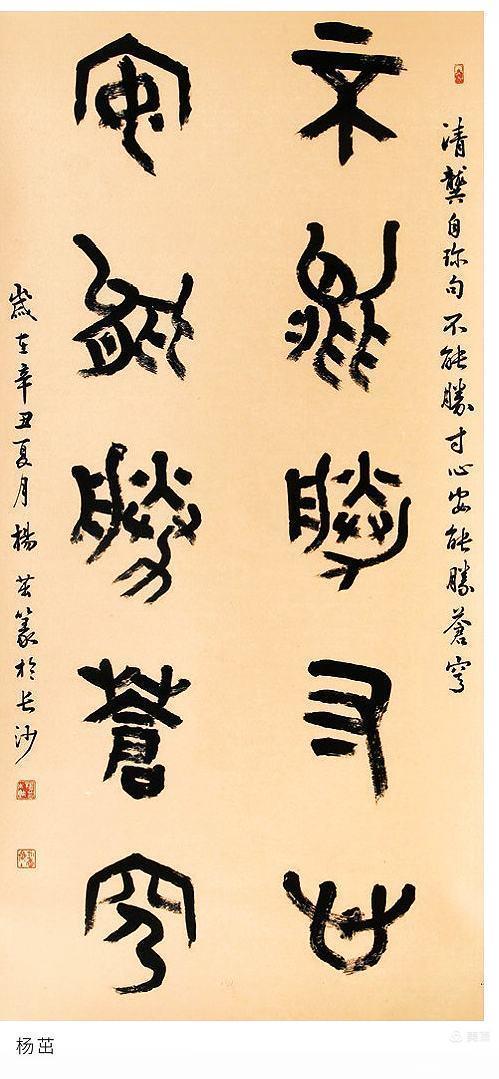 清龔自珎句不能勝寸心安能勝蒼穹
不能勝寸心
安能勝蒼穹
歲在辛丑夏月楊茁篆於长沙
杨茁
美篇